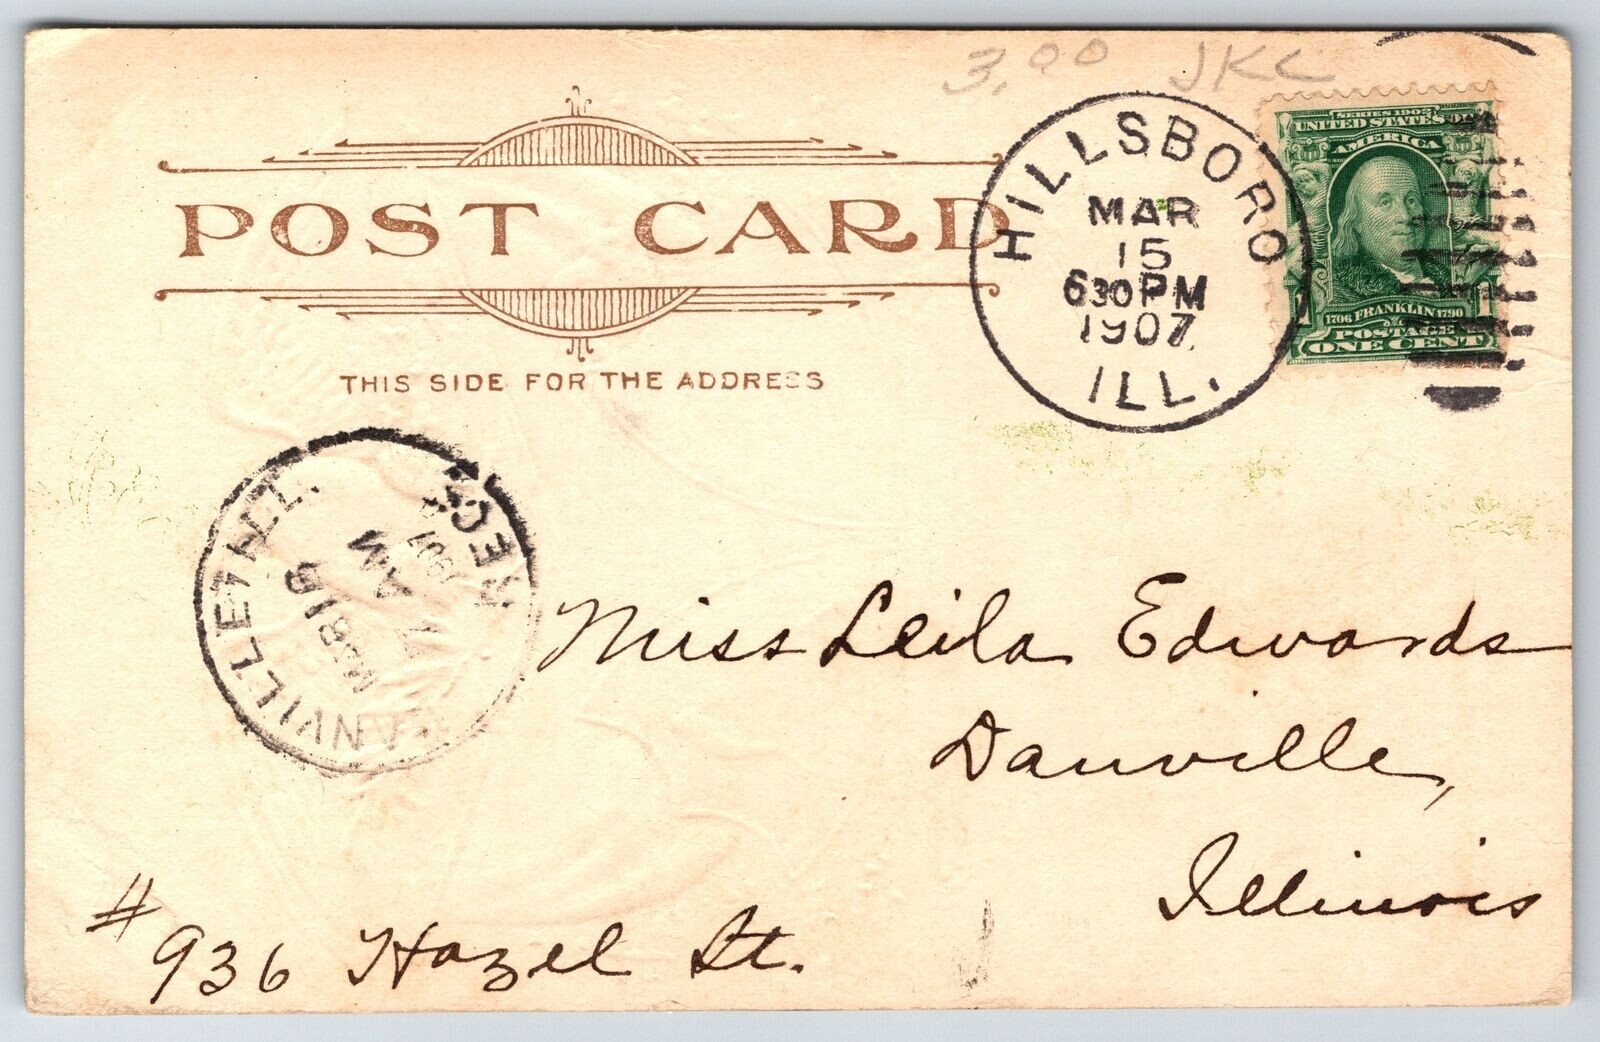 3.00 JKC
SERIES 1902
UNITED STATES OF
AMERICA
1706 FRANKLIN 1790
POSTAGE
1 1
ONE CENT
HILLSBORO
MAR
15
630PM
1907
ILL.
POST CARD
THIS SIDE FOR THE ADDRESS
ILL.
REC'D.
7 AM
1907
Miss Leila Edwards
Danville,
Illinois
# 936 Hazel St.